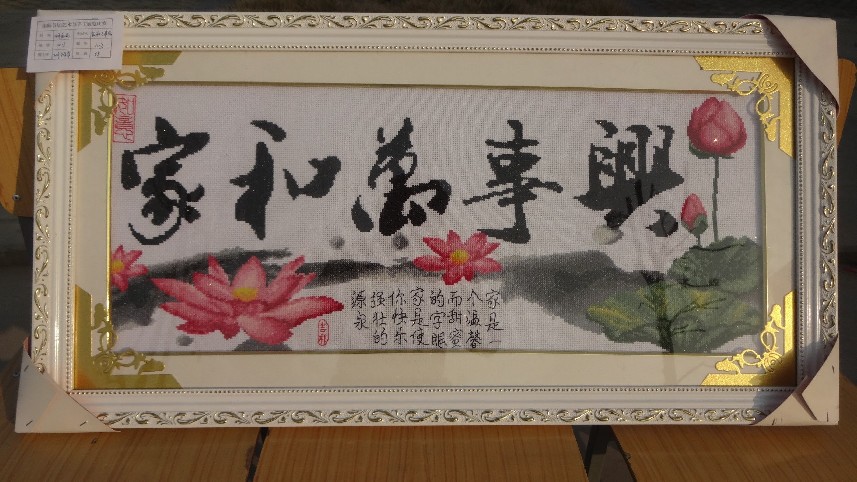 家和萬事興
家是一
个温馨
而甜蜜
的字眼
家是使
你快乐
强壮的
源泉
吉祥